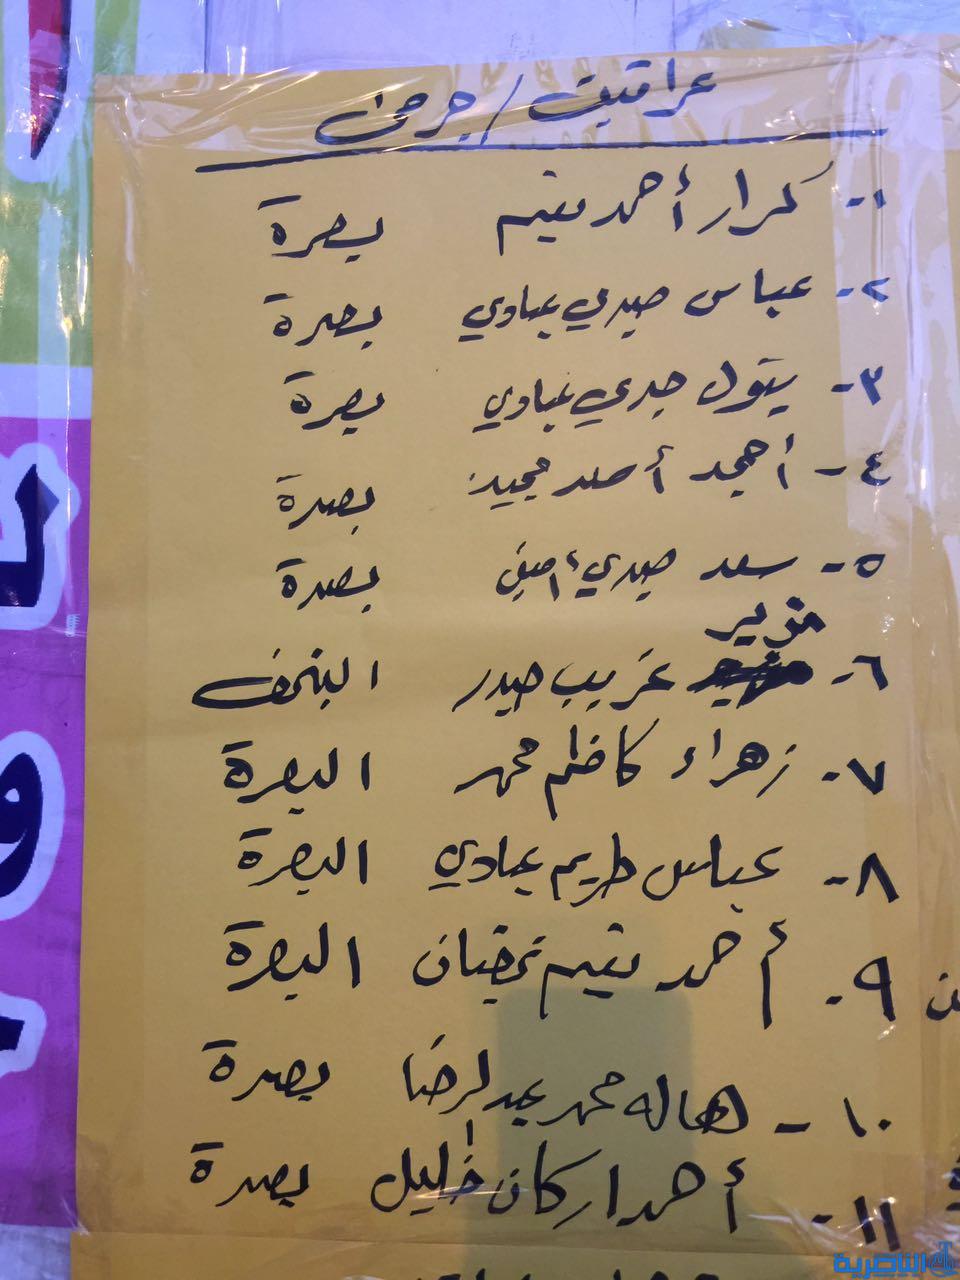 عراقيين / جرحى
١- كرار أحمد يتيم بصرة
٢- عباس صبري عبادي بصرة
٣- بتول عبادي بصرة
٤- أمجد أسعد مجيد بصرة
٥- سعد صبري بصرة
٦- غريب حيدر النجف
٧- زهراء كاظم محمد البصرة
٨- عباس عبادي البصرة
٩- أحمد يتيم البصرة
١٠- هاله محمد عبد الرضا بصرة
١١- أركان خليل بصرة
الناصرية